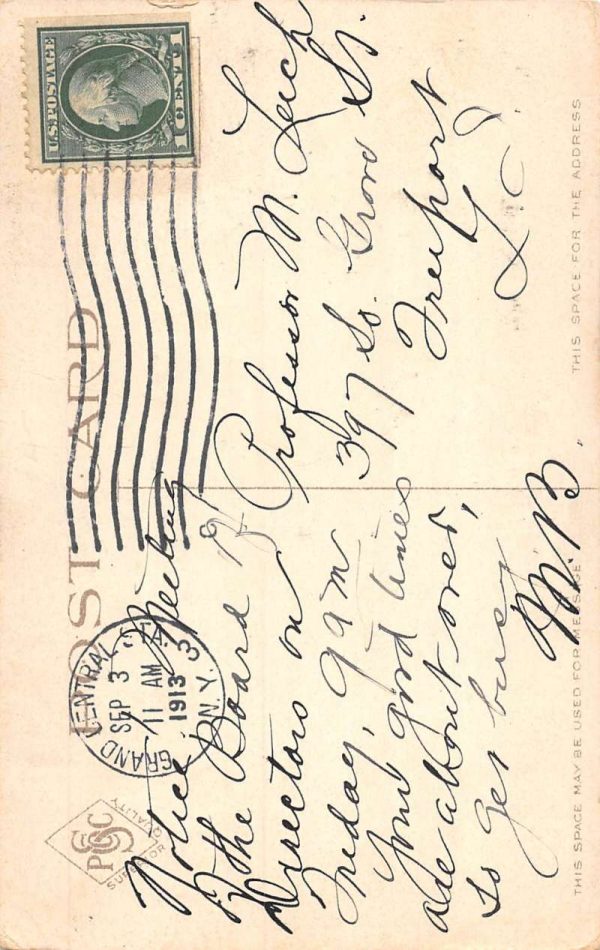 POST CARD
U.S. POSTAGE
1 CENT 1
GRAND CENTRAL STA.
SEP 3
11 AM
1913
N.Y.
3
PSCC
SUPERIOR QUALITY
Police Meeting
of the Board of
Directors on
Friday, 9 am
Your good times
are about over,
so get busy
M. B.
Professor M. Leich
397 So. Grove St.
Freeport
L. I.
THIS SPACE MAY BE USED FOR MESSAGE
THIS SPACE FOR THE ADDRESS